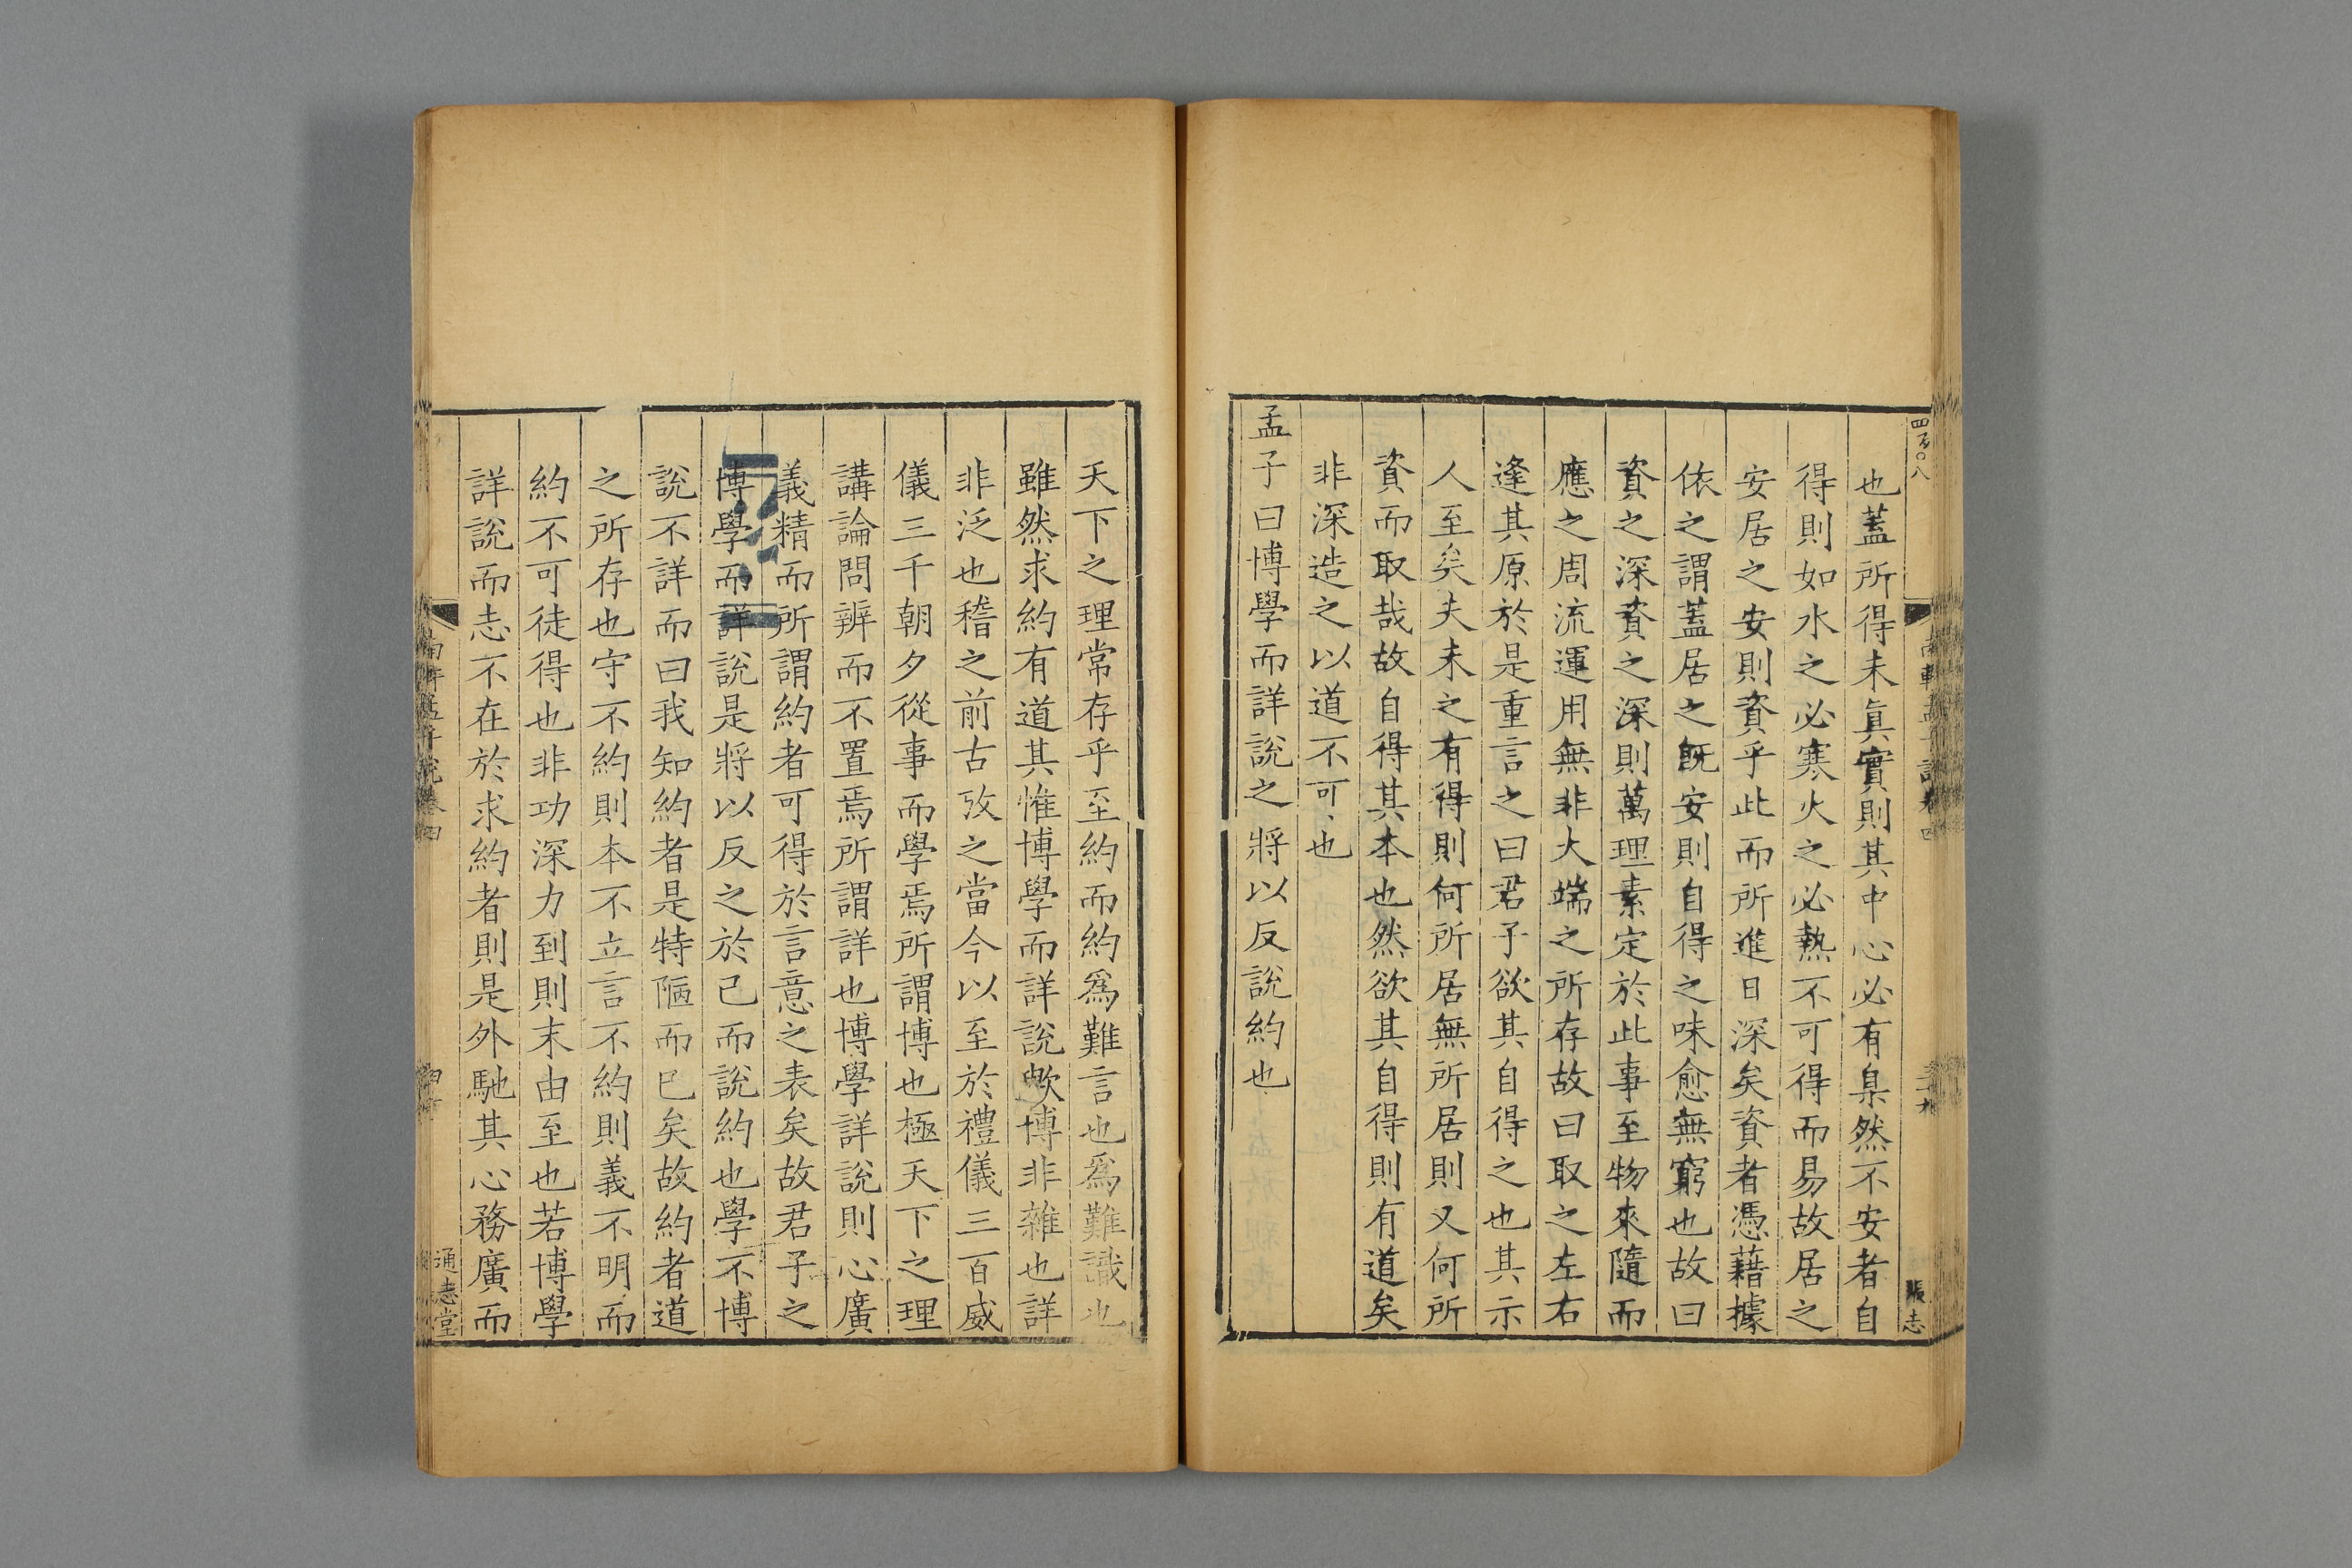 四百〇八
張志
也蓋所得未眞實則其中心必有臬然不安者自
得則如水之必寒火之必熱不可得而易故居之
安居之安則資乎此而所進日深矣資者憑藉據
依之謂蓋居之旣安則自得之味愈無窮也故曰
資之深資之深則萬理素定於此事至物來隨而
應之周流運用無非大端之所存故曰取之左右
逢其原於是重言之曰君子欲其自得之也其示
人至矣夫未之有得則何所居無所居則又何所
資而取哉故自得其本也然欲其自得則有道矣
非深造之以道不可也
孟子曰博學而詳說之將以反說約也
天下之理常存乎至約而約爲難言也爲難識也
雖然求約有道其惟博學而詳說歟博非雜也詳
非泛也稽之前古攷之當今以至於禮儀三百威
儀三千朝夕從事而學焉所謂博也極天下之理
講論問辨而不置焉所謂詳也博學詳說則心廣
義精而所謂約者可得於言意之表矣故君子之
博學而詳說是將以反之於己而說約也學不博
說不詳而曰我知約者是特陋而巳矣故約者道
之所存也守不約則本不立言不約則義不明而
約不可徒得也非功深力到則末由至也若博學
詳說而志不在於求約者則是外馳其心務廣而
通志堂